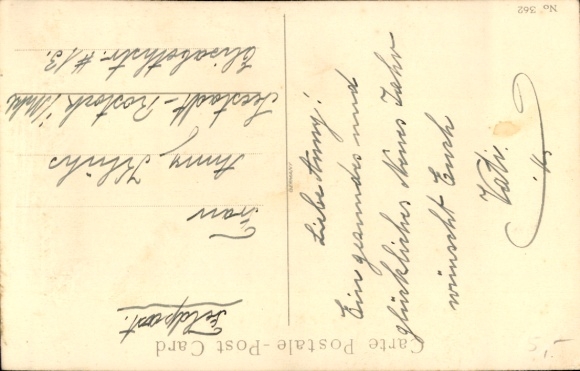 Carte Postale - Post Card
Feldpost.
Frau
Anny
Seestadt - Rostock i/Meckl
Elisabethstr. #13.
Liebe Anny!
Ein gesundes und
glückliches Neues Jahr
wünscht Euch
Vati.
GERMANY
No 362
5,-